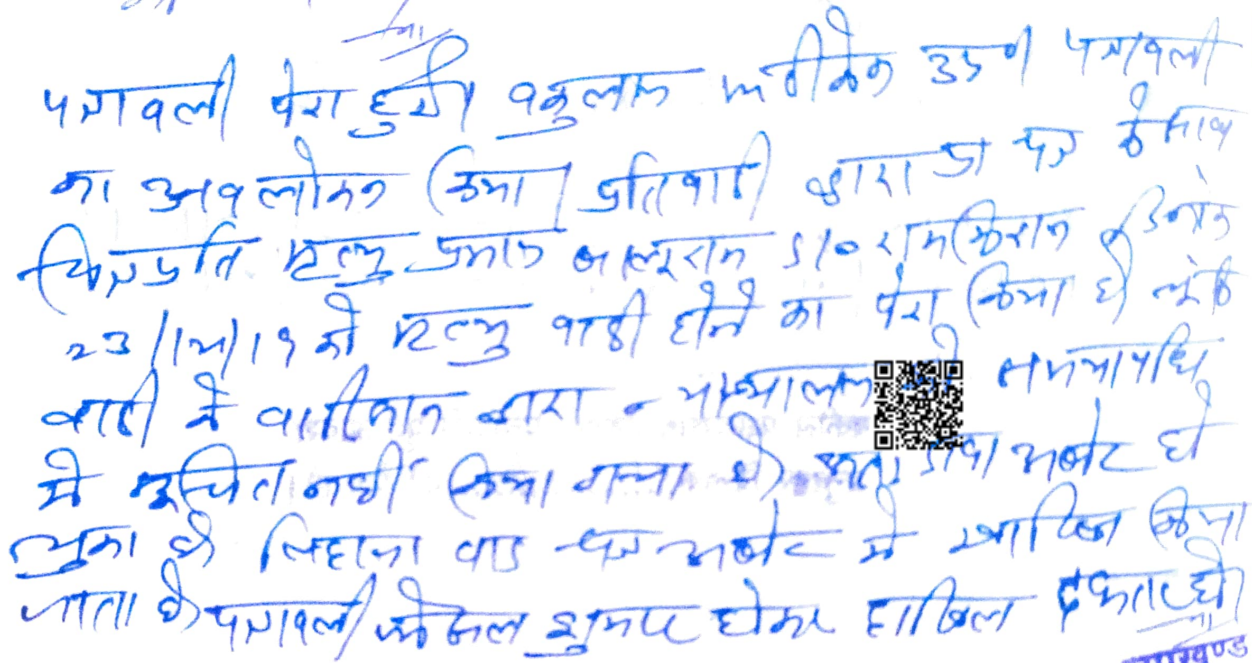 पत्रावली पेश हुयी वकुलाय फरीकेन उप० पत्रावली
का अवलोकन किया। प्रतिवादी द्वारा प्रा पत्र के साथ
चित्रप्रति मृत्यु प्रमाण कालूराम S/० रामकिशन दिनांक
23/ /19 को मृत्यु वादी होने का पेश किया है चूंकि
वादी के वारिसान द्वारा न्यायालय को समयावधि
में सूचित नहीं किया गया है अतः दावा अबेट हो
चुका है लिहाजा वाद पत्र अबेट में खारिज किया
जाता है पत्रावली फैसल शुमार होकर दाखिल दफ्तर हो।